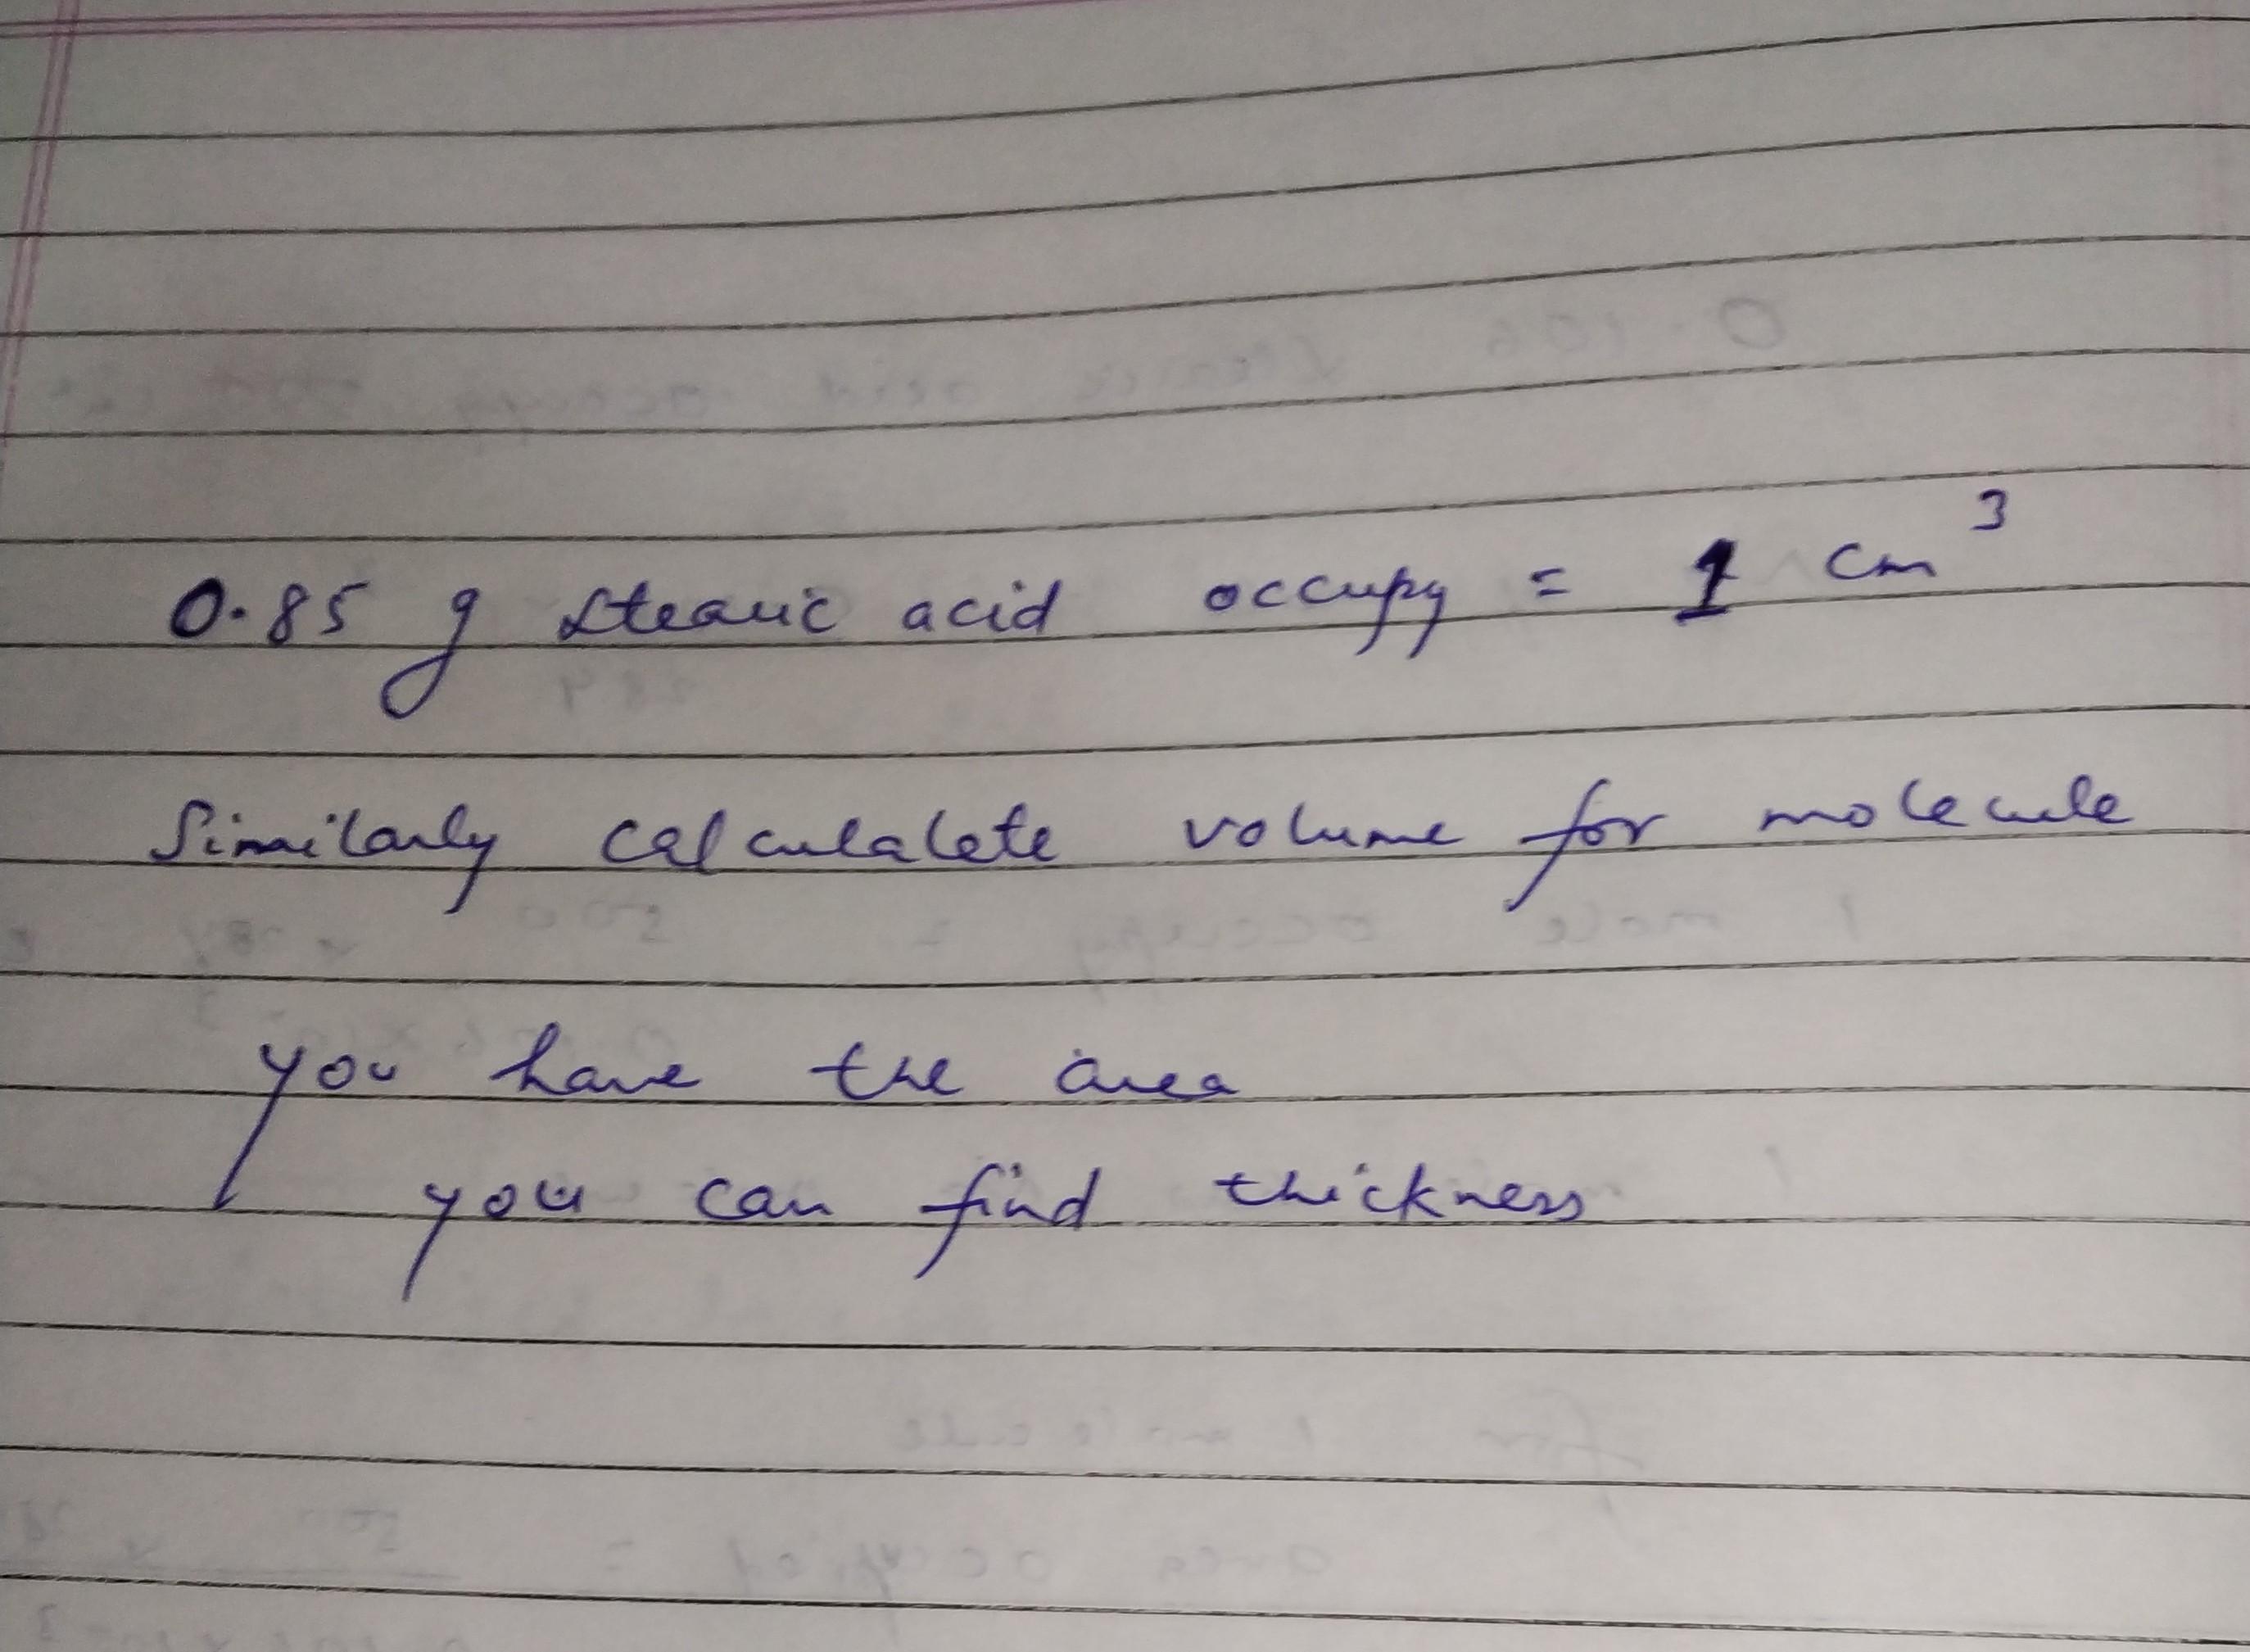 0.85 g stearic acid occupy = 1 cm³
Similarly calculalete volume for molecule
you have the area
you can find thickness